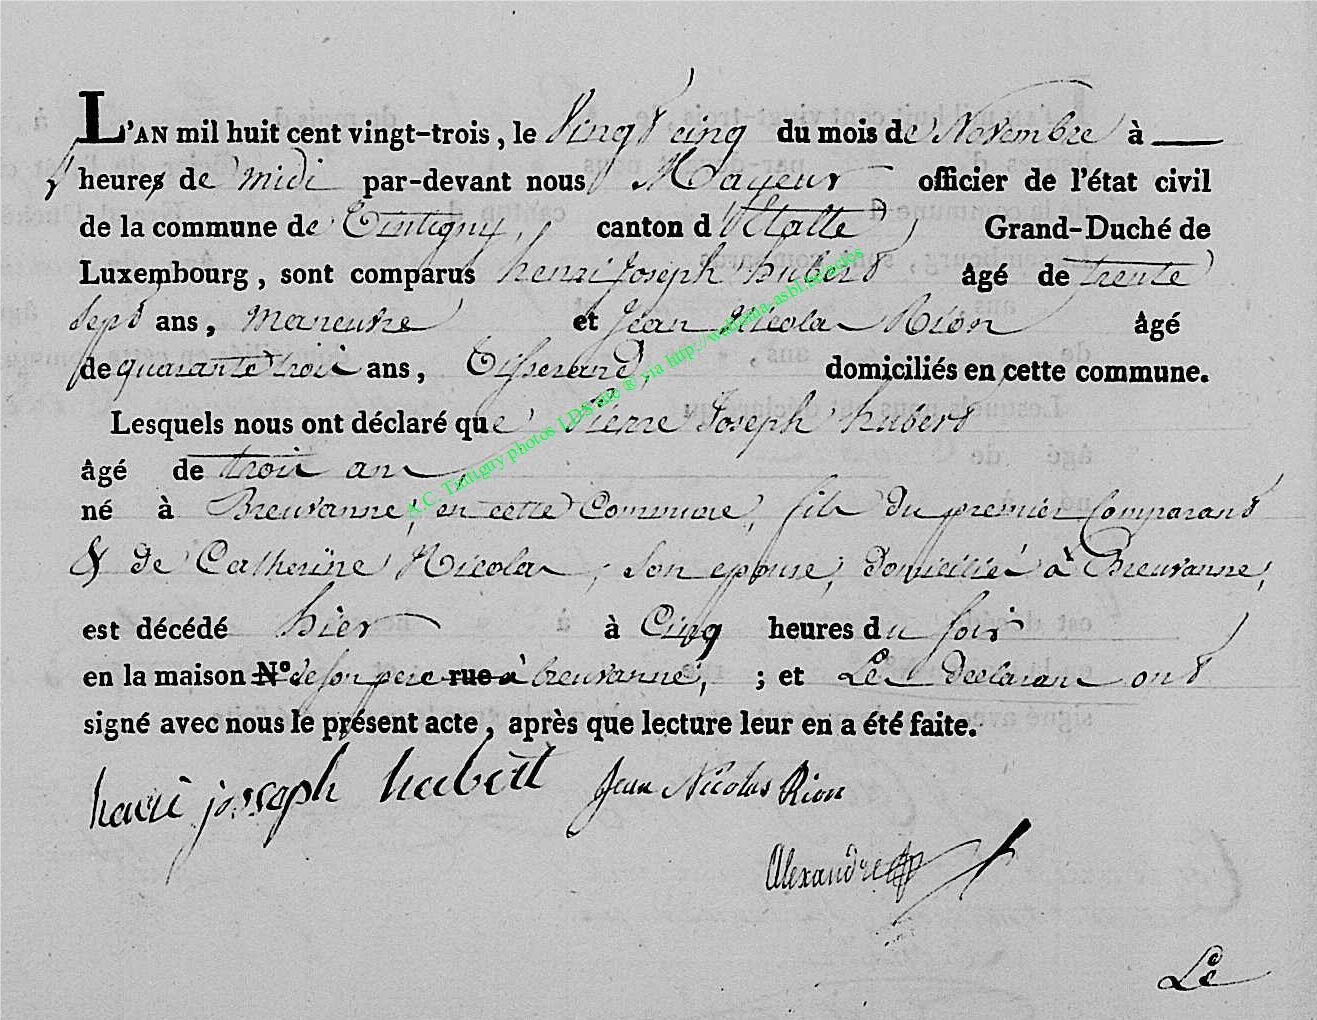 L'AN mil huit cent vingt-trois, le Vingt cinq du mois de Novembre à
heures de midi par-devant nous Mayeur officier de l'état civil
de la commune de Tintigny, canton d'Etalle, Grand-Duché de
Luxembourg, sont comparus henri Joseph hubert âgé de trente
sept ans, et Jean Nicolas Rion âgé
de quarante trois ans, Tisserand, domiciliés en cette commune.
Lesquels nous ont déclaré que Pierre Joseph hubert
âgé de trois ans,
né à Breuvanne, en cette Commune, fils du premier Comparant
& de Catherine Nicolas, son epouse, domicilié à Breuvanne,
est décédé hier à Cinq heures du soir
en la maison N° de son pere rue à breuvanne, ; et Les declarans ont
signé avec nous le présent acte, après que lecture leur en a été faite.
henri josseph hubert Jean Nicolas Rion
Alexandre
Le
A.C. Tintigny photos LDS site ® via http://wallonia-asbl.be/actes